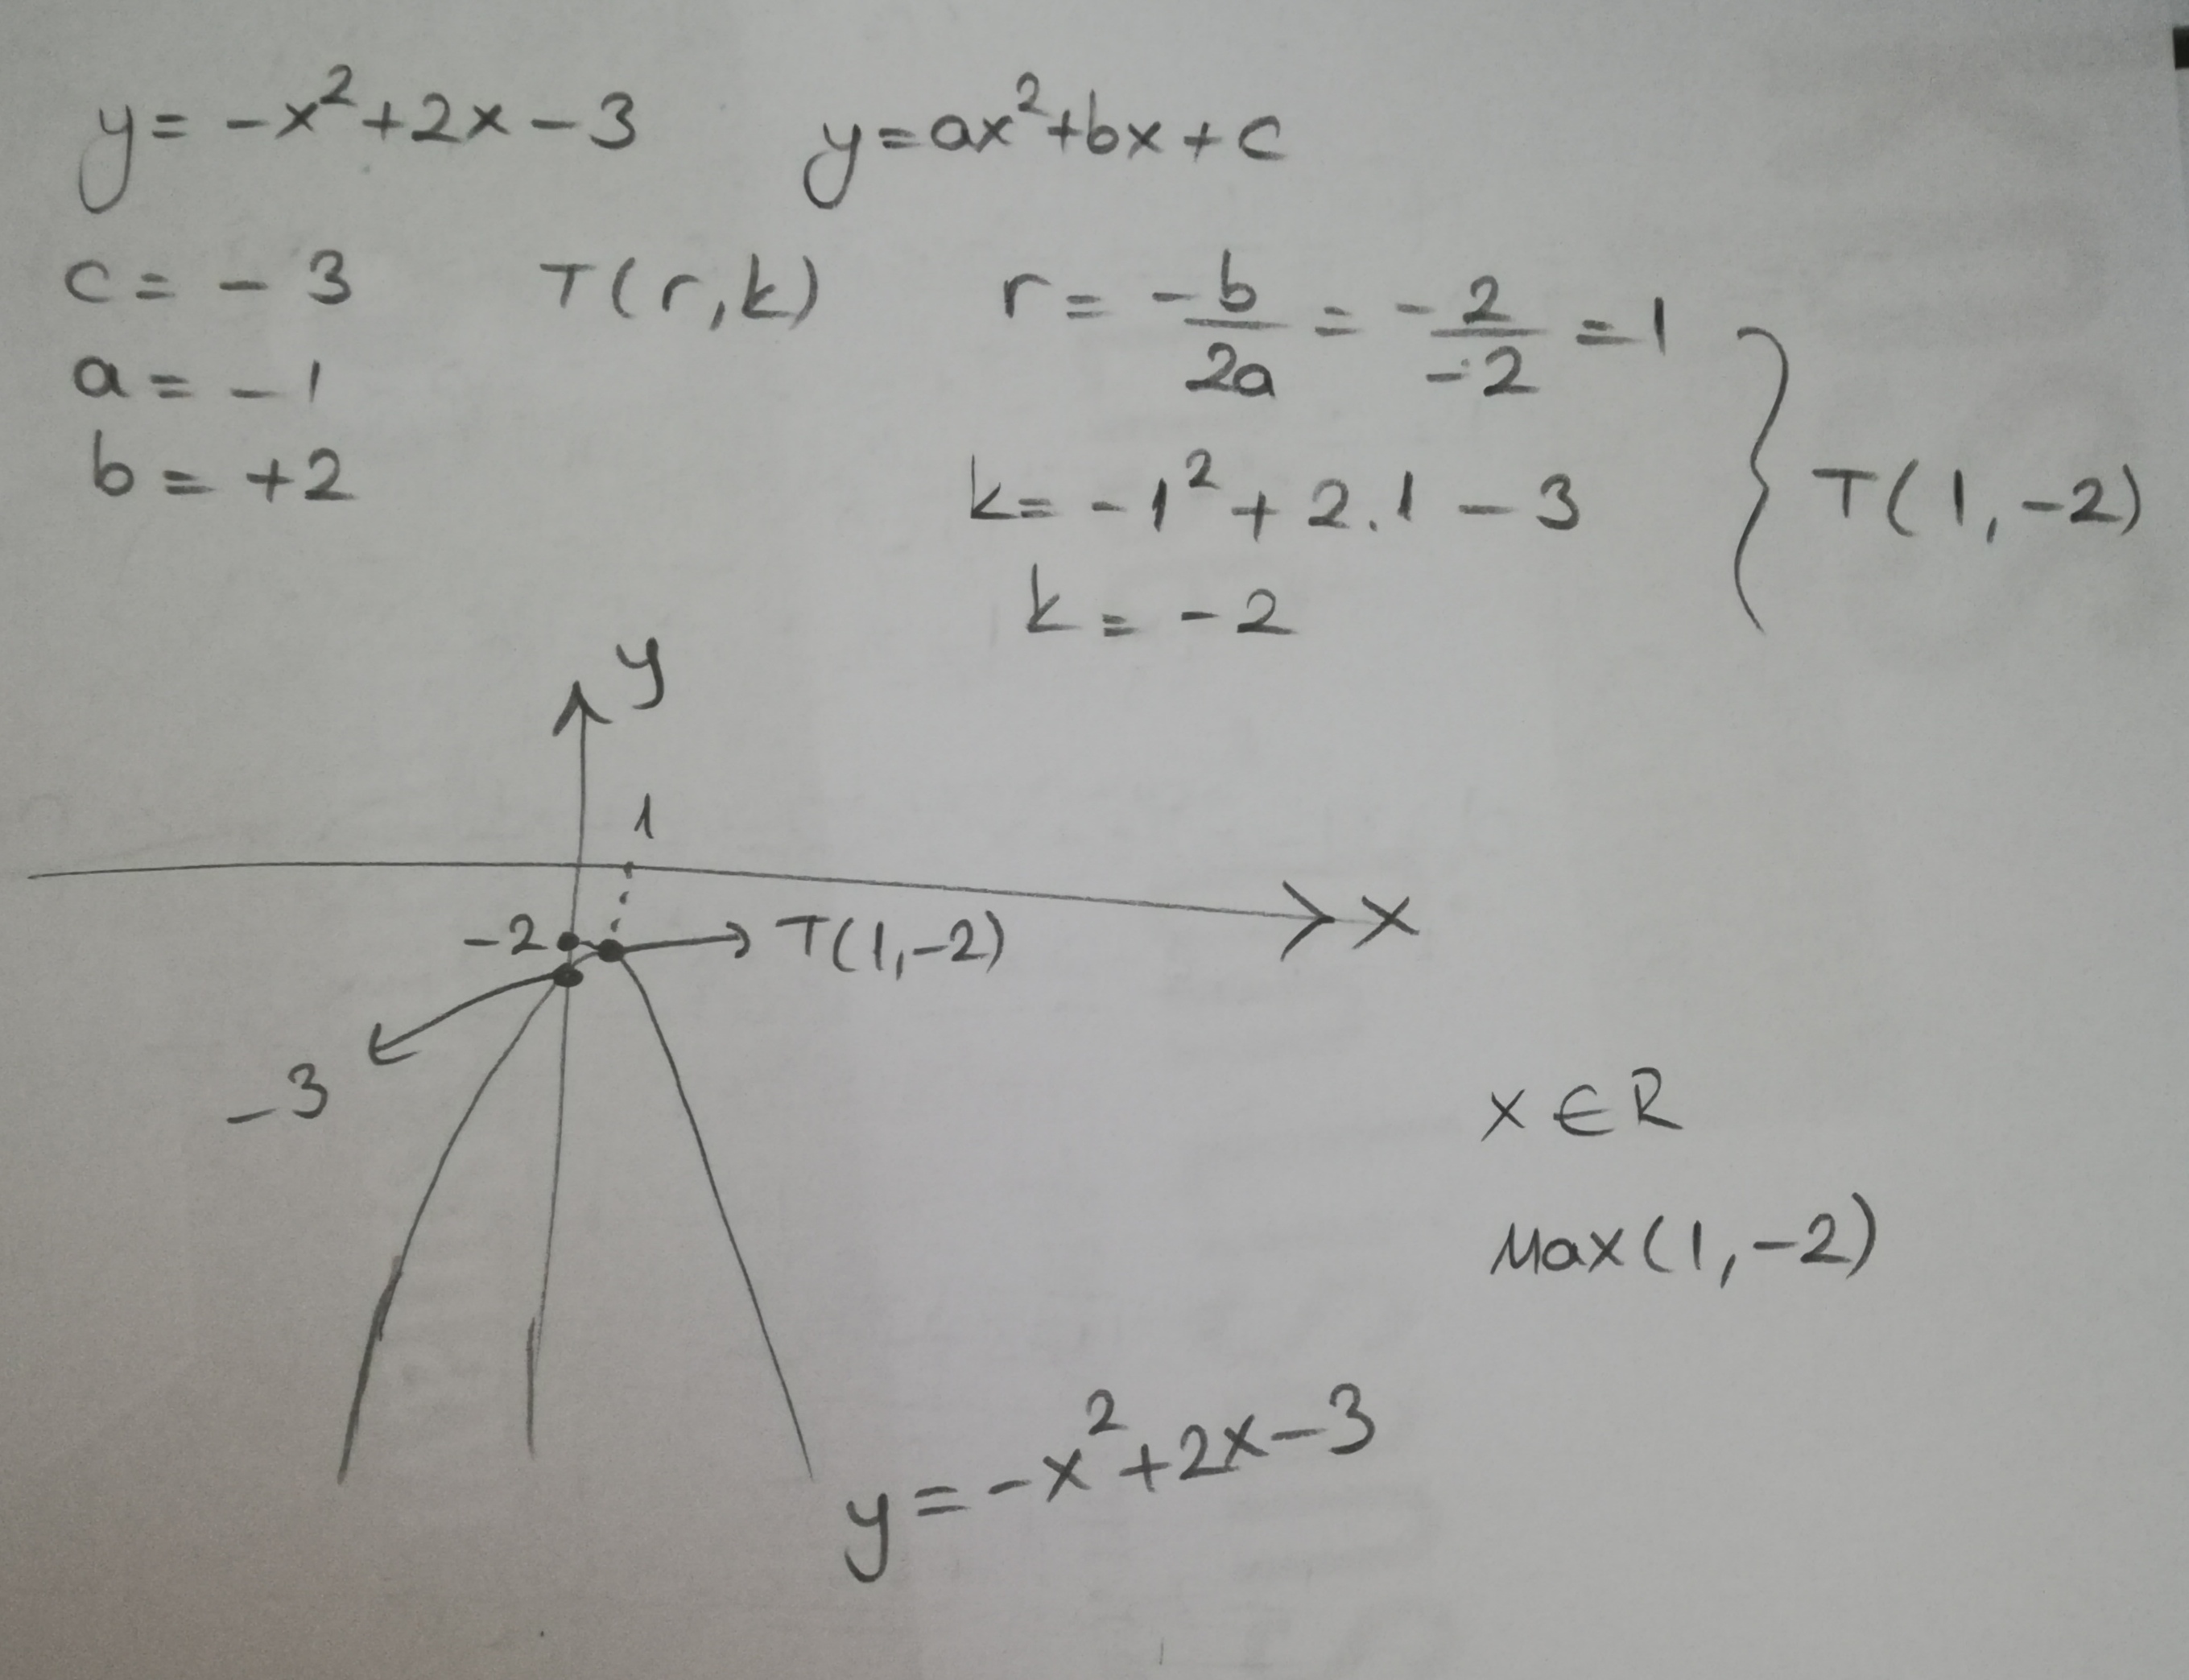 y = -x² + 2x - 3   y = ax² + bx + c
c = - 3   T(r,k)   r = -b/2a = -2/-2 = 1
a = - 1
b = +2   k = -1² + 2.1 - 3   T(1, -2)
k = -2
y
1
x
-2   T(1,-2)
-3
x ∈ R
Max(1, -2)
y = -x² + 2x - 3